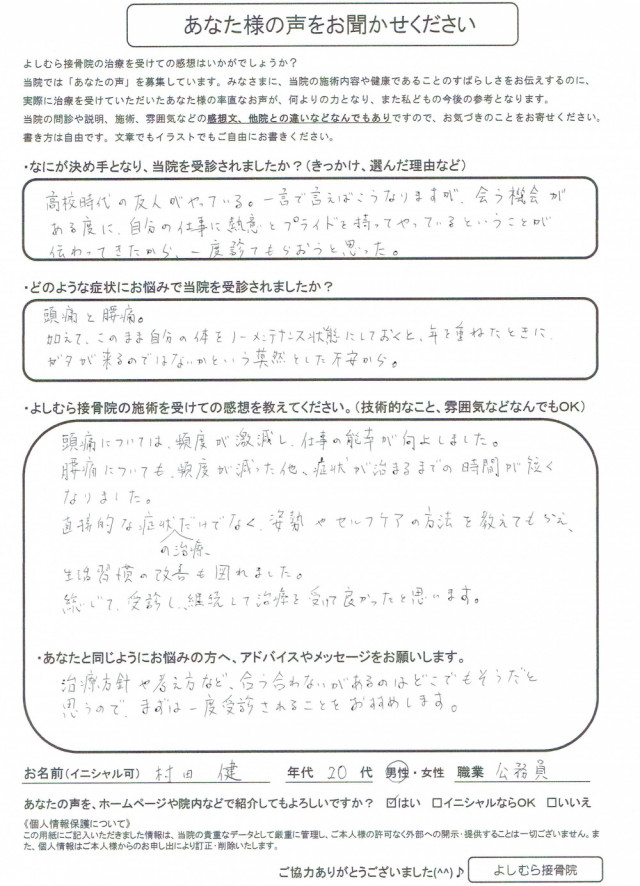 あなた様の声をお聞かせください
よしむら接骨院の治療を受けての感想はいかがでしょうか?
当院では「あなたの声」を募集しています。みなさまに、当院の施術内容や健康であることのすばらしさをお伝えするのに、
実際に治療を受けていただいたあなた様の率直なお声が、何よりの力となり、また私どもの今後の参考となります。
当院の問診や説明、施術、雰囲気などの感想文、他院との違いなどなんでもありですので、お気づきのことをお寄せください。
書き方は自由です。文章でもイラストでもご自由にお書きください。
・なにが決め手となり、当院を受診されましたか?(きっかけ、選んだ理由など)
高校時代の友人がやっている。一言で言えばこうなりますが、会う機会が
ある度に、自分の仕事に熱意とプライドを持ってやっているということが
伝わってきたから、一度診てもらおうと思った。
・どのような症状にお悩みで当院を受診されましたか?
頭痛と腰痛。
加えて、このまま自分の体をノーメンテナンス状態にしておくと、年を重ねたときに、
ガタが来るのではないかという漠然とした不安から。
・よしむら接骨院の施術を受けての感想を教えてください。(技術的なこと、雰囲気などなんでもOK)
頭痛については、頻度が激減し、仕事の能率が向上しました。
腰痛についても、頻度が減った他、症状が治まるまでの時間が短く
なりました。
直接的な症状だけでなく、姿勢やセルフケアの方法を教えてもらえ、
の治療
生活習慣の改善も図れました。
総じて、受診し、継続して治療を受けて良かったと思います。
・あなたと同じようにお悩みの方へ、アドバイスやメッセージをお願いします。
治療方針や考え方など、合う合わないがあるのはどこでもそうだと
思うので、まずは一度受診されることをおすすめします。
お名前(イニシャル可) 村田 健 年代 20 代 男性・女性 職業 公務員
あなたの声を、ホームページや院内などで紹介してもよろしいですか? ☑はい □イニシャルならOK □いいえ
《個人情報保護について》
この用紙にご記入いただきました情報は、当院の貴重なデータとして厳重に管理し、ご本人様の許可なく外部への開示・提供することは一切ございません。ま
た、個人情報はご本人様からのお申し出により訂正・削除いたします。
ご協力ありがとうございました(^^)♪ よしむら接骨院